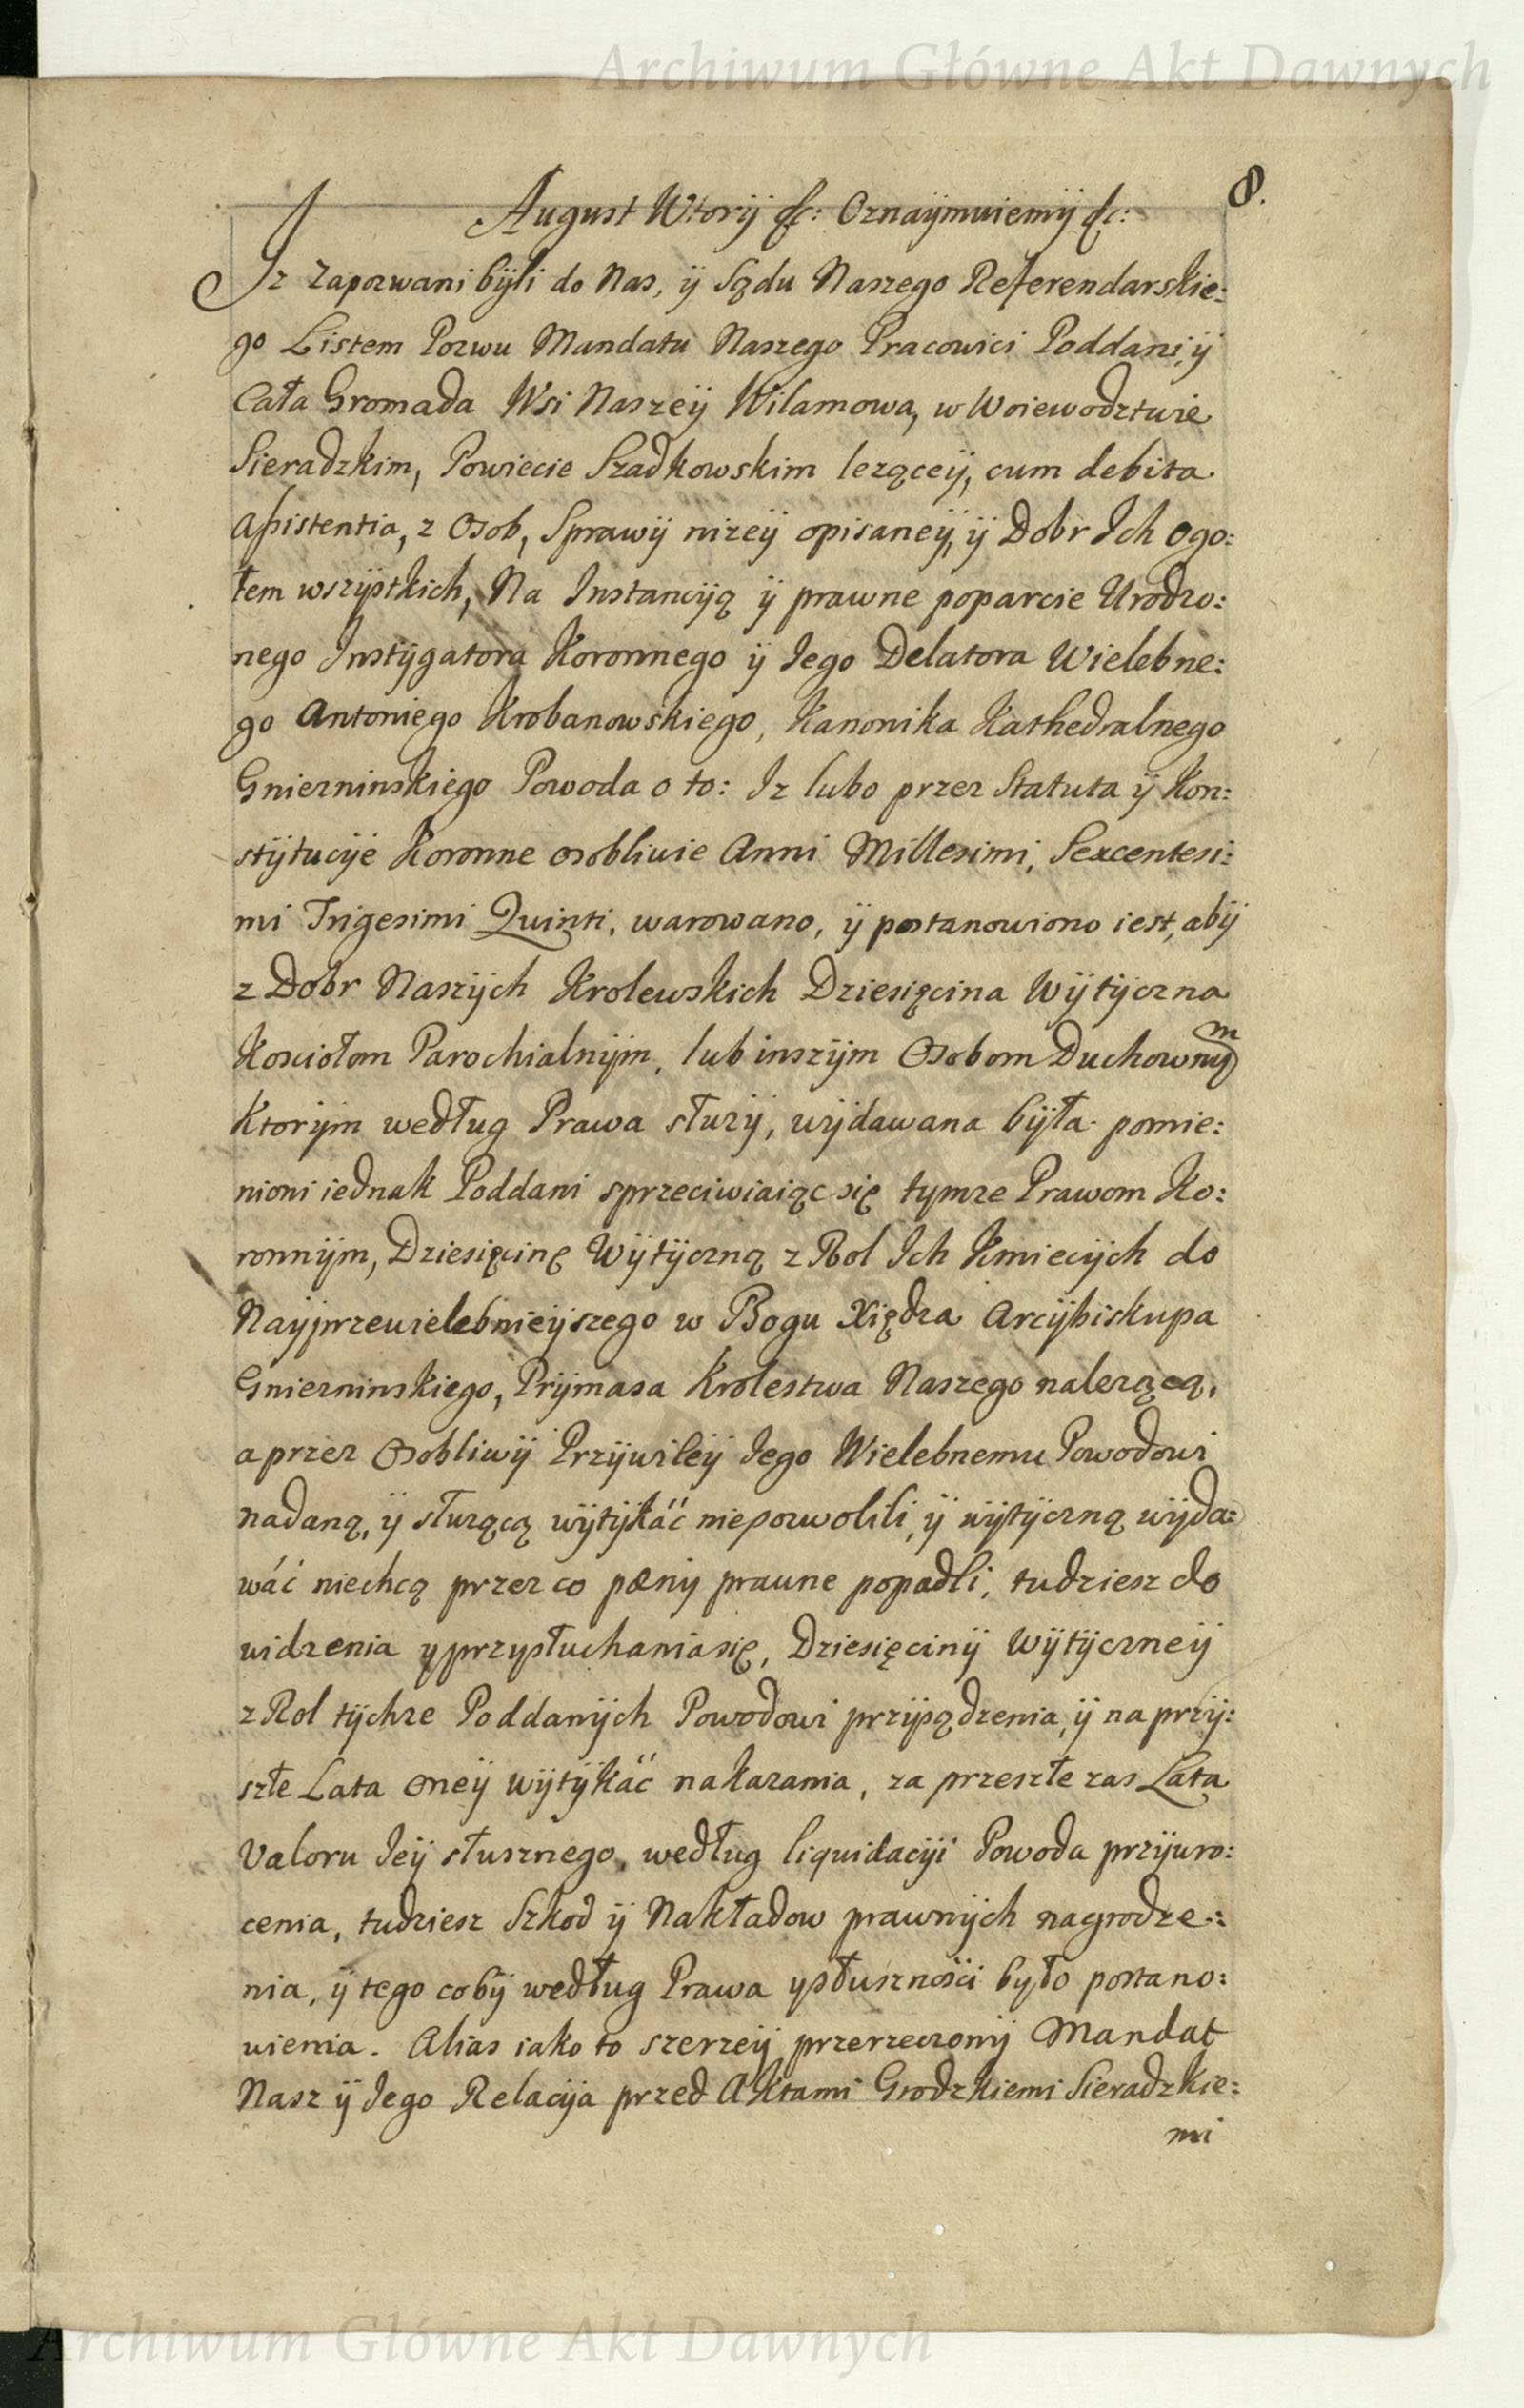 Archiwum Główne Akt Dawnych
8.
August Wtorÿ &c: Oznaÿmuiemÿ &c:
Iz zapozwani bÿli do Nas, ÿ Sądu Naszego Referendarskie:
go Listem Pozwu Mandatu Naszego Pracowici Poddani, ÿ
Cała Gromada Wsi Naszeÿ Wilamowa, w Woiewodztwie
Sieradzkim, Powiecie Szadkowskim leząceÿ, cum debita
assistentia, z Osob, Sprawÿ nizeÿ opisaneÿ, ÿ Dobr Ich ogo:
łem wszÿstkich, Na Instancÿą ÿ prawne poparcie Urodzo:
nego Instÿgatora Koronnego ÿ Iego Delatora Wielebne:
go Antoniego Krobanowskiego, Kanonika Kathedralnego
Gniezninskiego Powoda o to: Iz lubo przez Statuta ÿ Kon:
stÿtucÿe Koronne osobliwie Anni Millesimi, Sexcentesi:
mi Trigesimi Quinti, warowano, ÿ postanowiono iest, abÿ
z Dobr Naszÿch Krolewskich Dziesięcina Wÿtÿczna
Kosciołom Parochialnÿm, lub inszÿm Osobom Duchownÿm
Ktorÿm według Prawa słuzÿ, wÿdawana bÿła. pomie:
nioni iednak Poddani sprzeciwiaiąc się tymze Prawom Ko:
ronnÿm, Dziesięcinę Wÿtÿczną z Rol Ich Kmiecÿch do
Nayprzewielebnieÿszego w Bogu Xiędza Arcÿbiskupa
Gniezninskiego, Prÿmasa Krolestwa Naszego nalezącą,
a przez Osobliwÿ Przÿwileÿ Iego Wielebnemu Powodowi
nadaną, ÿ słuzącą wÿtÿkáć niepozwolili, ÿ wÿtÿczną wÿda:
wáć niechcą przez co pœnÿ prawne popadli, tudziesz do
widzenia y przysłuchania się, Dziesięcinÿ Wÿtÿczneÿ
z Rol tÿchze Poddanÿch Powodowi przÿsądzenia, ÿ na przÿ:
szłe Lata oneÿ wÿtÿkáć nakazania, za przeszłe zas Lata
Valoru Ieÿ słusznego, według liquidacÿi Powoda przÿwro:
cenia, tudziesz Szkod ÿ Nakładow prawnÿch nagrodze:
nia, ÿ tego cobÿ według Prawa y słusznośći było postano:
wienia. Alias iako to szerzeÿ przerzeczonÿ Mandat
Nasz ÿ Iego Relacÿa przed Aktami Grodzkiemi Sieradzkie:
mi
Archiwum Główne Akt Dawnych